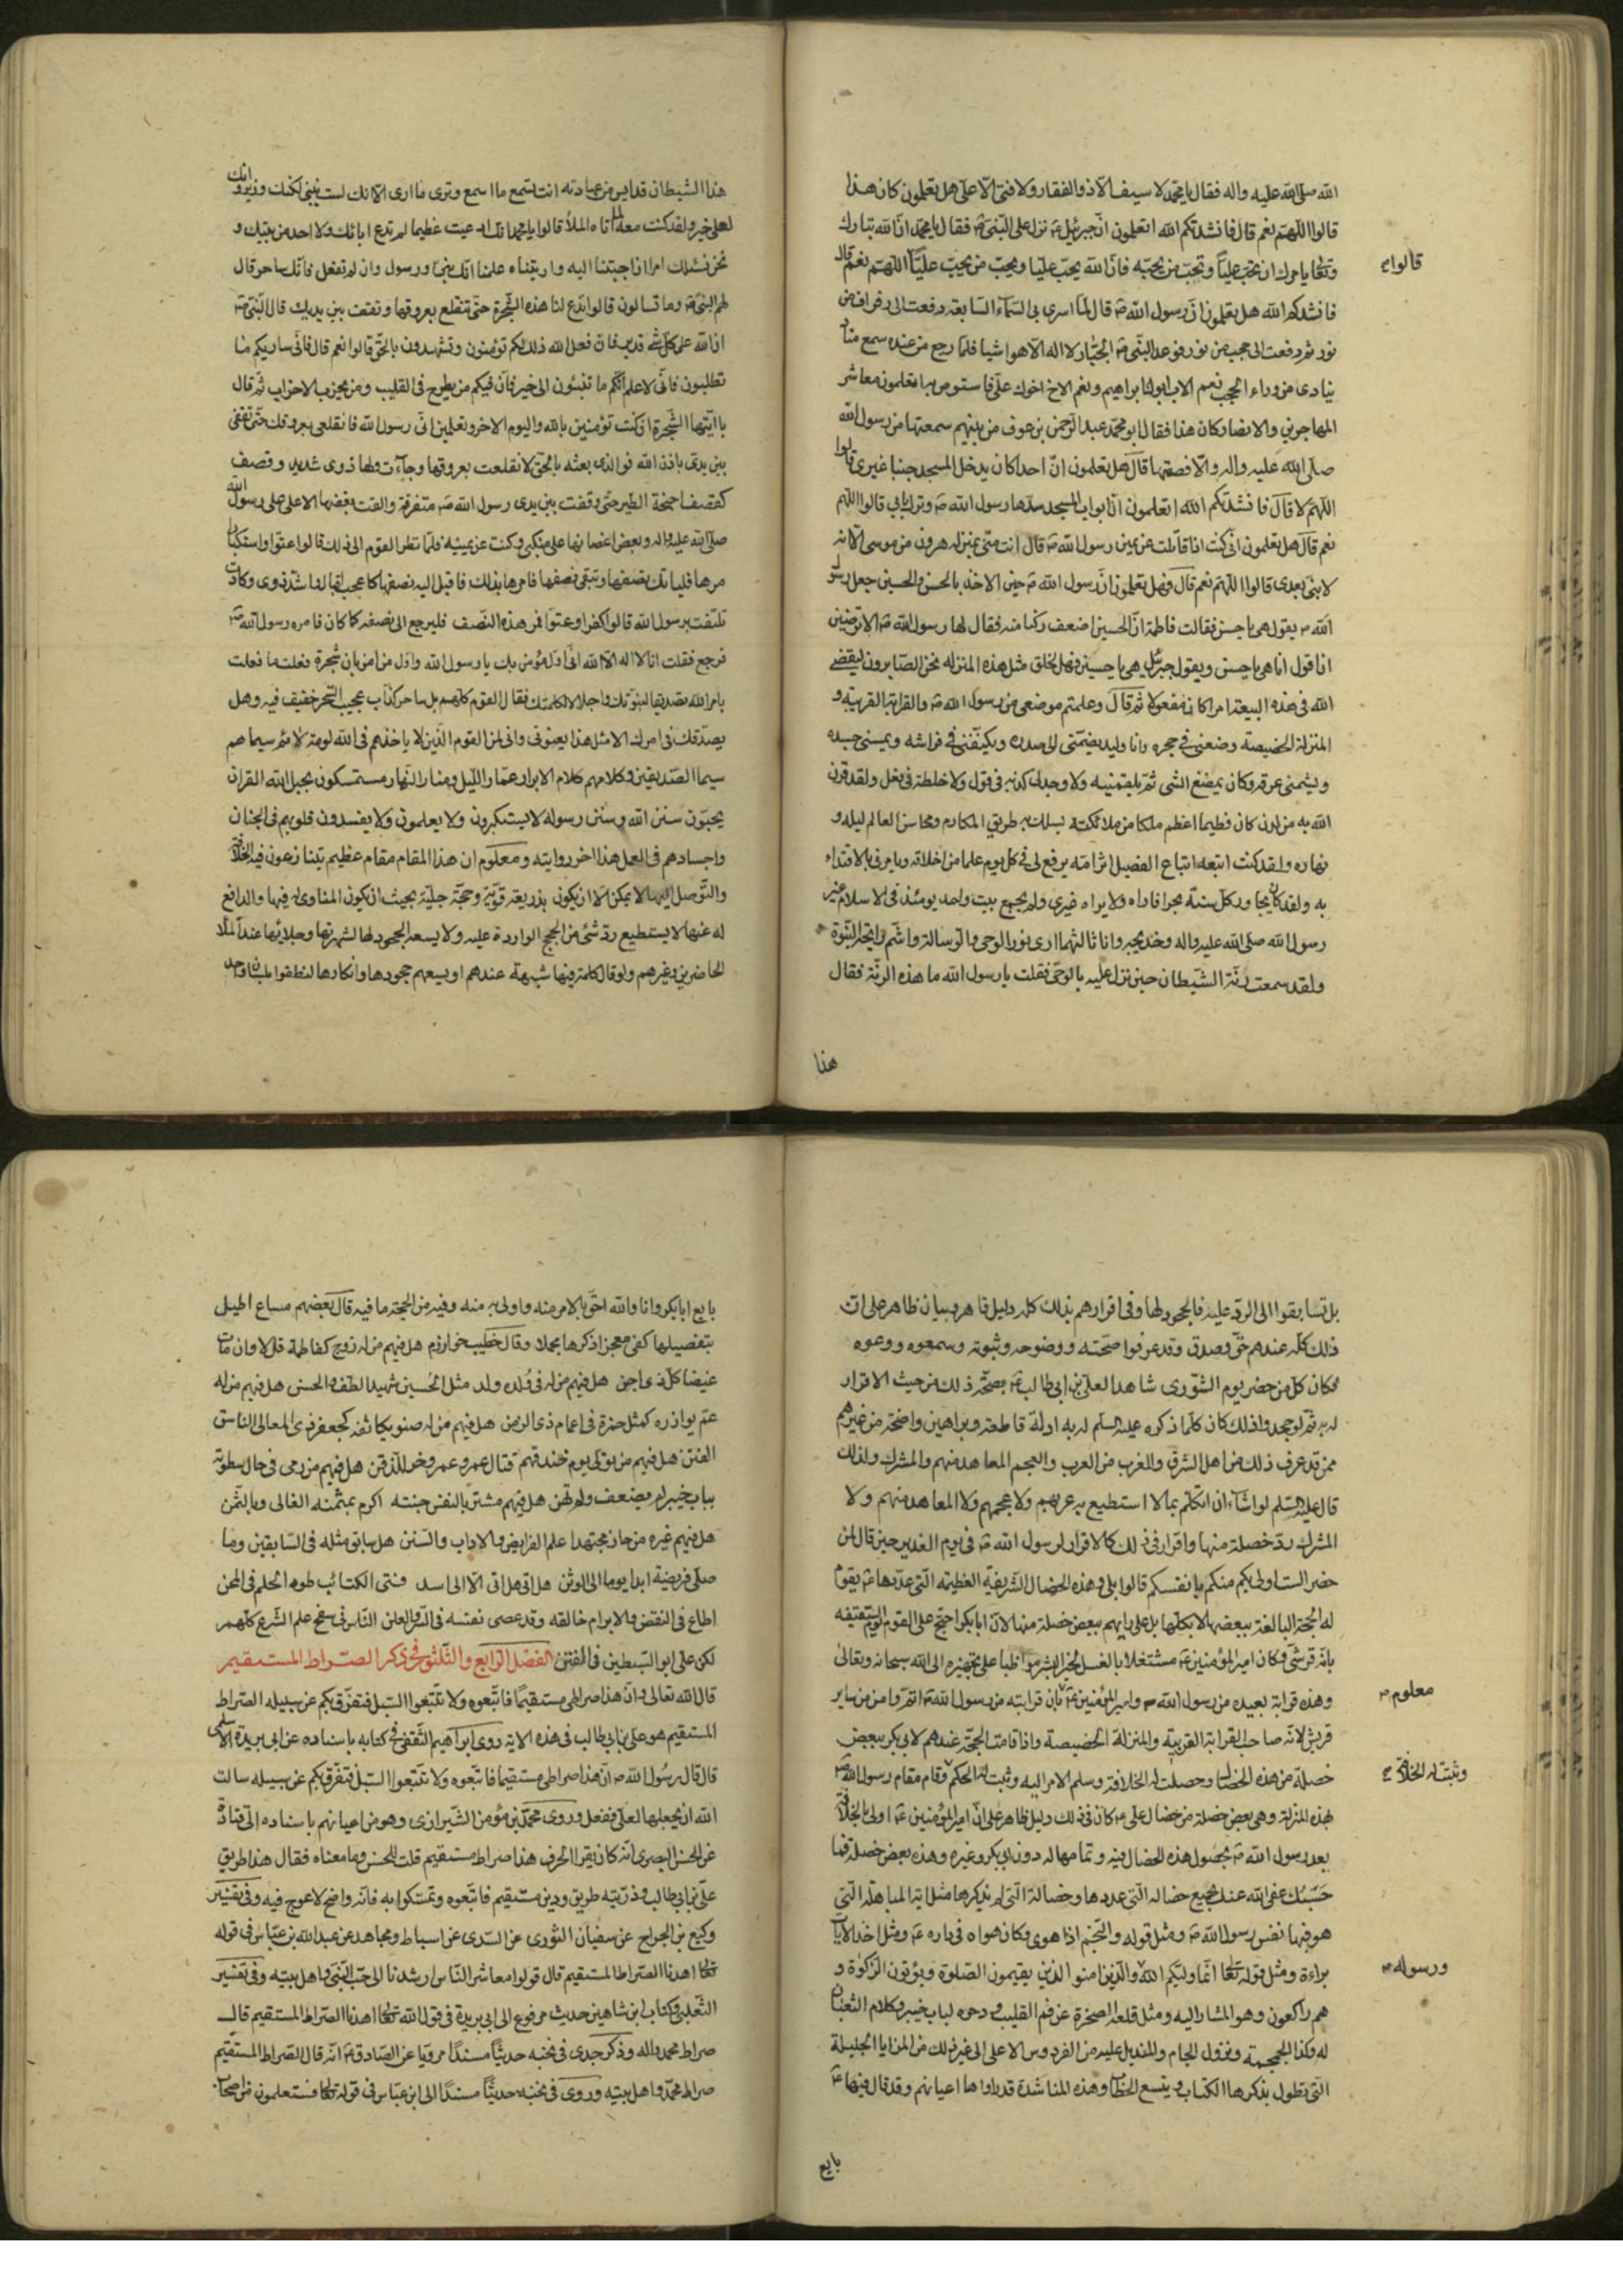 الله صلى الله عليه واله فقال يا محمد لا سيف الا ذو الفقار ولا فتى الا علي هل تعلمون كان هذا
قالوا اللهم نعم قال فانشدتكم الله اتعلمون ان جبرئيل ع نزل على النبي ص فقال يا محمد ان الله تبارك
قالوا
وتعالى يامرك ان تحب عليا وتحب من يحبه فان الله يحب عليا ويحب من يحب عليا اللهم نعم قال
فانشدكم الله هل تعلمون ان رسول الله ص قال لما اسري بي الى السماء السابعة دفعت الى رفراف من
نور ثم دفعت الى حجب من نور فوعد النبي ص الجبار لا اله الا هو اشيا فلما رجع من عنده سمع مناد
ينادي من وراء الحجب نعم الاب ابوك ابراهيم ونعم الاخ اخوك علي فاستوص به اتعلمون معاشر
المهاجرين والانصار كان هذا فقال ابو محمد عبد الرحمن بن عوف من بينهم سمعتها من رسول الله
صلى الله عليه واله والا فصمتها قال هل تعلمون ان احدا كان يدخل المسجد جنبا غيري قالوا
اللهم لا قال فانشدتكم الله اتعلمون ان ابواب المسجد سدها رسول الله ص وترك بابي قالوا اللهم
نعم قال هل تعلمون اني كنت اذا قاتلت عن يمين رسول الله ص قال انت مني بمنزلة هرون من موسى الا انه
لا نبي بعدي قالوا اللهم نعم قال فهل تعلمون ان رسول الله ص حين الاخذ بالحسن والحسين جعل رسول
الله ص يقول هي يا حسن فقالت فاطمة ان الحسين اضعف ركنا منه فقال لها رسول الله ص الا ترضين
انا اقول انا هي يا حسن ويقول جبرئيل هي يا حسين فهل لخلق مثل هذه المنزلة نحن الصابرون ليقضي
الله في هذه البيعة امرا كان مفعولا ثم قال وعلمتم موضعي من رسول الله ص والقرابة القريبة و
المنزلة الخصيصة وضعني في حجره وانا وليد يضمني الى صدره ويكنفني في فراشه ويمسني جسده
ويشمني عرقه وكان يمضغ الشي ثم يلقمنيه ولا وجد لي كذبة في قول ولا خلطة في فعل ولقد قرن
الله به من لدن كان فطيما اعظم ملكا من ملائكته يسلك به طريق المكارم ومحاسن العالم ليله و
نهاره ولقد كنت اتبعه اتباع الفصيل اثر امه يرفع لي في كل يوم علما من اخلاقه ويامرني بالاقتداء
به ولقد كان يجاور كل سنة بحرا فاراه ولا يراه غيري ولم يجمع بيت واحد يومئذ في الاسلام غير
رسول الله صلى الله عليه واله وخديجة وانا ثالثهما ارى نور الوحي والرسالة واشم رايحة النبوة
ولقد سمعت رنة الشيطان حين نزل عليه بالوحي فقلت يا رسول الله ما هذه الرنة فقال
هذا
هذا الشيطان قد ايس من عبادته انت تسمع ما اسمع وترى ما ارى الا انك لست بنبي لكنك وزير وانك
لعلى خير ولقد كنت معه لما اتاه الملأ قالوا يا محمد انك ادعيت عظيما لم تدع اباؤك ولا احد من بيتك و
نحن نسئلك امرا اذا اجبتنا اليه واريتناه علمنا انك نبي ورسول وان لم تفعل فانك ساحر قال
لهم النبي ص وما تسالون قالوا تدع لنا هذه الشجرة حتى تنقلع بعروقها وتقف بين يديك قال النبي ص
ان الله على كل شي قدير فان فعل الله ذلك لكم تؤمنون وتشهدون بالحق قالوا نعم قال فاني ساريكم ما
تطلبون فاني لاعلم انكم ما تفيئون الى خير فان فيكم من يطرح في القليب ومن يحزب الاحزاب ثم قال
يا ايتها الشجرة ان كنت تؤمنين بالله واليوم الاخر وتعلمين اني رسول الله فانقلعي بعروقك حتى تقفي
بين يدي باذن الله فوالذي بعثه بالحق لانقلعت بعروقها وجاءت ولها دوي شديد وقصف
كقصف اجنحة الطير حتى وقفت بين يدي رسول الله ص متفرقة والقت بغصنها الاعلى على رسول الله
صلى الله عليه واله وبعض اغصانها على منكبي وكنت عن يمينه فلما نظر القوم الى ذلك قالوا عتوا واستكبارا
مرها فليأتك نصفها وتبقى نصفها فامرها بذلك فاقبل اليه نصفها كاعجب اقبال واشد دوي وكادت
تلتف برسول الله قالوا كفرا وعتوا فمر هذا النصف فليرجع الى نصفه كما كان فامره رسول الله ص
فرجع فقلت انا لا اله الا الله اني اول مؤمن بك يا رسول الله واول من امن بان شجرة فعلت ما فعلت
بامر الله تصديقا لنبوتك واجلالا لكلمتك فقال القوم كلهم بل ساحر كذاب عجيب السحر خفيف فيه وهل
يصدقك في امرك الا مثل هذا يعنوني واني لمن القوم الذين لا ياخذهم في الله لومة لائم سيماهم
سيما الصديقين وكلامهم كلام الابرار عمار الليل ومنار النهار ومستمسكون بحبل الله القران
يحبون سنن الله وسنن رسوله لا يستكبرون ولا يعلمون ولا يفسدون قلوبهم في الجنان
واجسادهم في العمل هذا اخر روايته ومعلوم ان هذا المقام مقام عظيم يتنازعون فيه الخلافة
والتوصل اليها لا يمكن الا ان يكون بذريعة قوية وحجة جلية بحيث ان يكون المناوي له فيها والدافع
له عنها لا يستطيع رد شئ من الحجج الواردة عليه ولا يسعه الجحود لها لشهرتها وجلائها عند الملأ
الحاضرين وغيرهم ولو قال كلمة فيها شبهة عندهم او يسعهم جحودها وانكارها لنطقوا بلسان واحد
بل تسابقوا الى الرد عليه فالجحود لها وفي اقرارهم بذلك كله دليل قاهر وبيان ظاهر على ان
ذلك كله عندهم حق وصدق وقد عرفوا صحته ووضوحه وثبوته وسمعوه ووعوه
فكان كل من حضر يوم الشورى شاهدا لعلي بن ابي طالب ع بصحة ذلك من حيث الاقرار
له به ثم لو جحد واذلك كان كلما ذكره عليه السلم لربه ادلة قاطعة وبراهين واضحة من غيرهم
ممن قد عرف ذلك من اهل الشرق والغرب من العرب والعجم المعاهد منهم والمشرك ولذلك
قال عليه السلم لو اشاء ان اتكلم بما لا استطيع به عربهم ولا عجمهم ولا المعاهد منهم ولا
المشرك رد خصلة منها واقرار في ذلك كالاقرار لرسول الله ص في يوم الغدير حين قال لمن
حضر الست اولى بكم منكم بانفسكم قالوا بلى وهذه الخصال الشريفة العظيمة التي عددها ع يقوم
له الحجة البالغة ببعضها لا بكلها بل على رايهم ببعض خصلة منها لان ابا بكر احتج على القوم يوم السقيفة
بانه قرشي وكان امير المؤمنين ع مشتغلا بالغسل لخير البشر مواظبا على تجهيزه الى الله سبحانه وتعالى
معلوم
وهذه قرابة بعيدة من رسول الله ص وامير المؤمنين ع بان قرابته من رسول الله ص اقرب من ساير
قريش لانه صاحب القرابة القريبة والمنزلة الخصيصة واذا قامت الحجة عندهم لابي بكر ببعض
وثبت له الخلافة
خصلة من هذه الخصال وحصلت له الخلافة وسلم الامر اليه وثبت له الحكم وقام مقام رسول الله ص
لهذه المنزلة وهي بعض خصلة من خصال علي ع كان في ذلك دليل ظاهر على ان امير المؤمنين ع اولى بالخلافة
بعد رسول الله ص بحصول هذه الخصال فيه وتمامها له دون ابي بكر وغيره وهذه بعض خصلة فما
حسبك عفى الله عنك بجميع خصاله التي عددها وخصاله التي لم يذكرها مثل اية المباهلة التي
هو فيها نفس رسول الله ص ومثل قوله والنجم اذا هوى وكان هواه في داره ع ومثل اخذ الايات
ورسوله
براءة ومثل قوله تعالى انما وليكم الله والذين امنوا الذين يقيمون الصلوة ويؤتون الزكوة و
هم راكعون وهو المشار اليه ومثل قلعه الصخرة عن فم القليب ودحوه لباب خيبر وكلام الثعبان
له وكذا الجمجمة ونزول الجام والمنديل عليه من الفردوس الاعلى الى غير ذلك من المزايا الجليلة
التي يطول بذكرها الكتاب ويتسع الخطاب وهذه المناشدة قد رواها اعيانهم وقد قال فيها ع
بايع
بايع ابا بكر وانا والله احق بالامر منه واولى به منه وفيه من الحجة ما فيه قال بعضهم مساع اطيل
بتفصيلها كفى معجزا ذكرها مجملا وقال خطيب خوارزم هل فيهم من له زوج كفاطمة قل لا وان مات
غيضا كل ذي احن هل فيهم من له في ولده ولد مثل الحسين شهيد الطف والحسن هل فيهم من له
عم يوازره كمثل حمزة في اعمام ذي الزمن هل فيهم من له صنو يكانفه كجعفر ذي المعالي الباسق
الفنن هل فيهم من تولى يوم خندقهم قتال عمرو وعمرو خر للذقن هل فيهم من رمى في حال سطوته
بباب خيبر لم يضعف ولم يهن هل فيهم مشتر بالنفس جنته اكرم بمثمنه الغالي وبالثمن
هل فيهم غيره من حاز مجتهدا علم الفرايض والاداب والسنن هل سابق مثله في السابقين وما
صلى فريضة ابدا يوما الى الوثن هل اتى هل اتى الا الى اسد فتى الكتائب طود الحلم في المحن
اطاع في النقض والابرام خالقه وقد عصى نفسه في السر والعلن الناس في سفح علم الشرع كلهم
لكن علي ابو السبطين في القنن الفصل الرابع والثلثون في ذكر الصراط المستقيم
قال الله تعالى وان هذا صراطي مستقيما فاتبعوه ولا تتبعوا السبل فتفرق بكم عن سبيله الصراط
المستقيم هو علي بن ابي طالب في هذه الاية روى ابراهيم الثقفي في كتابه باسناده عن ابي بريدة الاسلمي
قال قال رسول الله ص ان هذا صراطي مستقيما فاتبعوه ولا تتبعوا السبل فتفرق بكم عن سبيله سالت
الله ان يجعلها لعلي ففعل وروى محمد بن مؤمن الشيرازي وهو من اعيانهم باسناده الى قتادة
عن الحسن البصري انه كان يقرا الحرف هذا صراط مستقيم قلت للحسن وما معناه فقال هذا طريق
علي بن ابي طالب وذريته طريق ودين مستقيم فاتبعوه وتمسكوا به فانه واضح لا عوج فيه وفي تفسير
وكيع بن الجراح عن سفيان الثوري عن السدي عن اسباط ومجاهد عن عبد الله بن عباس في قوله
تعالى اهدنا الصراط المستقيم قال قولوا معاشر الناس ارشدنا الى حب النبي واهل بيته وفي تفسير
الثعلبي وكتاب ابن شاهين حديث مرفوع الى ابي بريدة في قول الله تعالى اهدنا الصراط المستقيم قال
صراط محمد واله وذكر جدي في نخبه حديثا مسندا مرويا عن الصادق ع انه قال الصراط المستقيم
صراط محمد واهل بيته وروى في نخبه حديثا مسندا الى ابن عباس في قوله تعالى فستعلمون من اصحاب